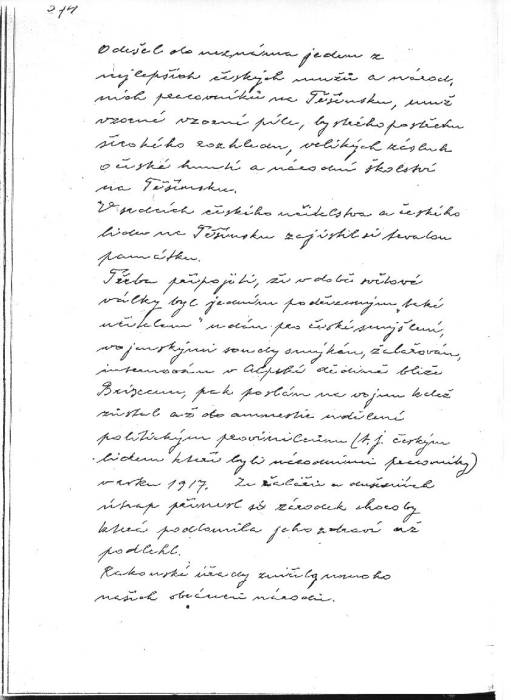 274
Odešel do neznáma jeden z
nejlepších českých mužů a národ,
ních pracovníků na Těšínsku, muž
vzorné vzorné píle, bystrého postřehu
širokého rozhledu, velikých zásluh
o české hnutí a národní školství
na Těšínsku.
V srdcích českého učitelstva a českého
lidu na Těšínsku zajistil si trvalou
památku.
Třeba připojiti, že v době světové
války byl jedním podězvemým "také
učitelem" udán pro české smýšlení,
vojenskými soudy smýkán, žalářován,
internován v Alpské dědině blíže
Brixenu, pak poslán na vojnu kdež
zůstal až do amnestie udělené
politickým provinilcům (t.j. českým
lidem kteří byli národními pracovníky)
v roku 1917. Ze žaláře a duševních
útrap přinesl si zárodek choroby
která podlomila jeho zdraví až
podlehl.
Rakouské úřady zničily mnoho
našich obránců národu.